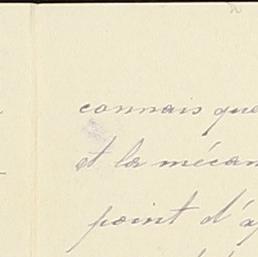 connais que
et la mécan
point d'a